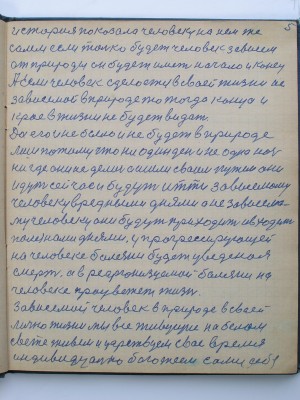 5
история показала человеку на нем же
самом если только будет человек зависем
от природы он будет иметь начало и конец
А если человек сделает у в своей жизни не
зависемост в природе то тогда конца и
края в жизни не будет видат.
Да его и не было и не будет в природе
Лиш потому что ни один ден и не одна ноч
ни где они не делис они шли своим путем они
идут сейчас и будут итти зависемому
человеку вредными днями а не зависемо-
му человеку они будут приходит и уходит
полезными днями. у прогрессирующей
на человеке болезни будет уведеная
смерт. а в реорганизуемой болезни на
человеке процветет жизн.
Зависемой человек в природе в своей
лично жизни мы все живущие на белом
свете живем и царствуем свое время
индивидуално богатеем сами себя